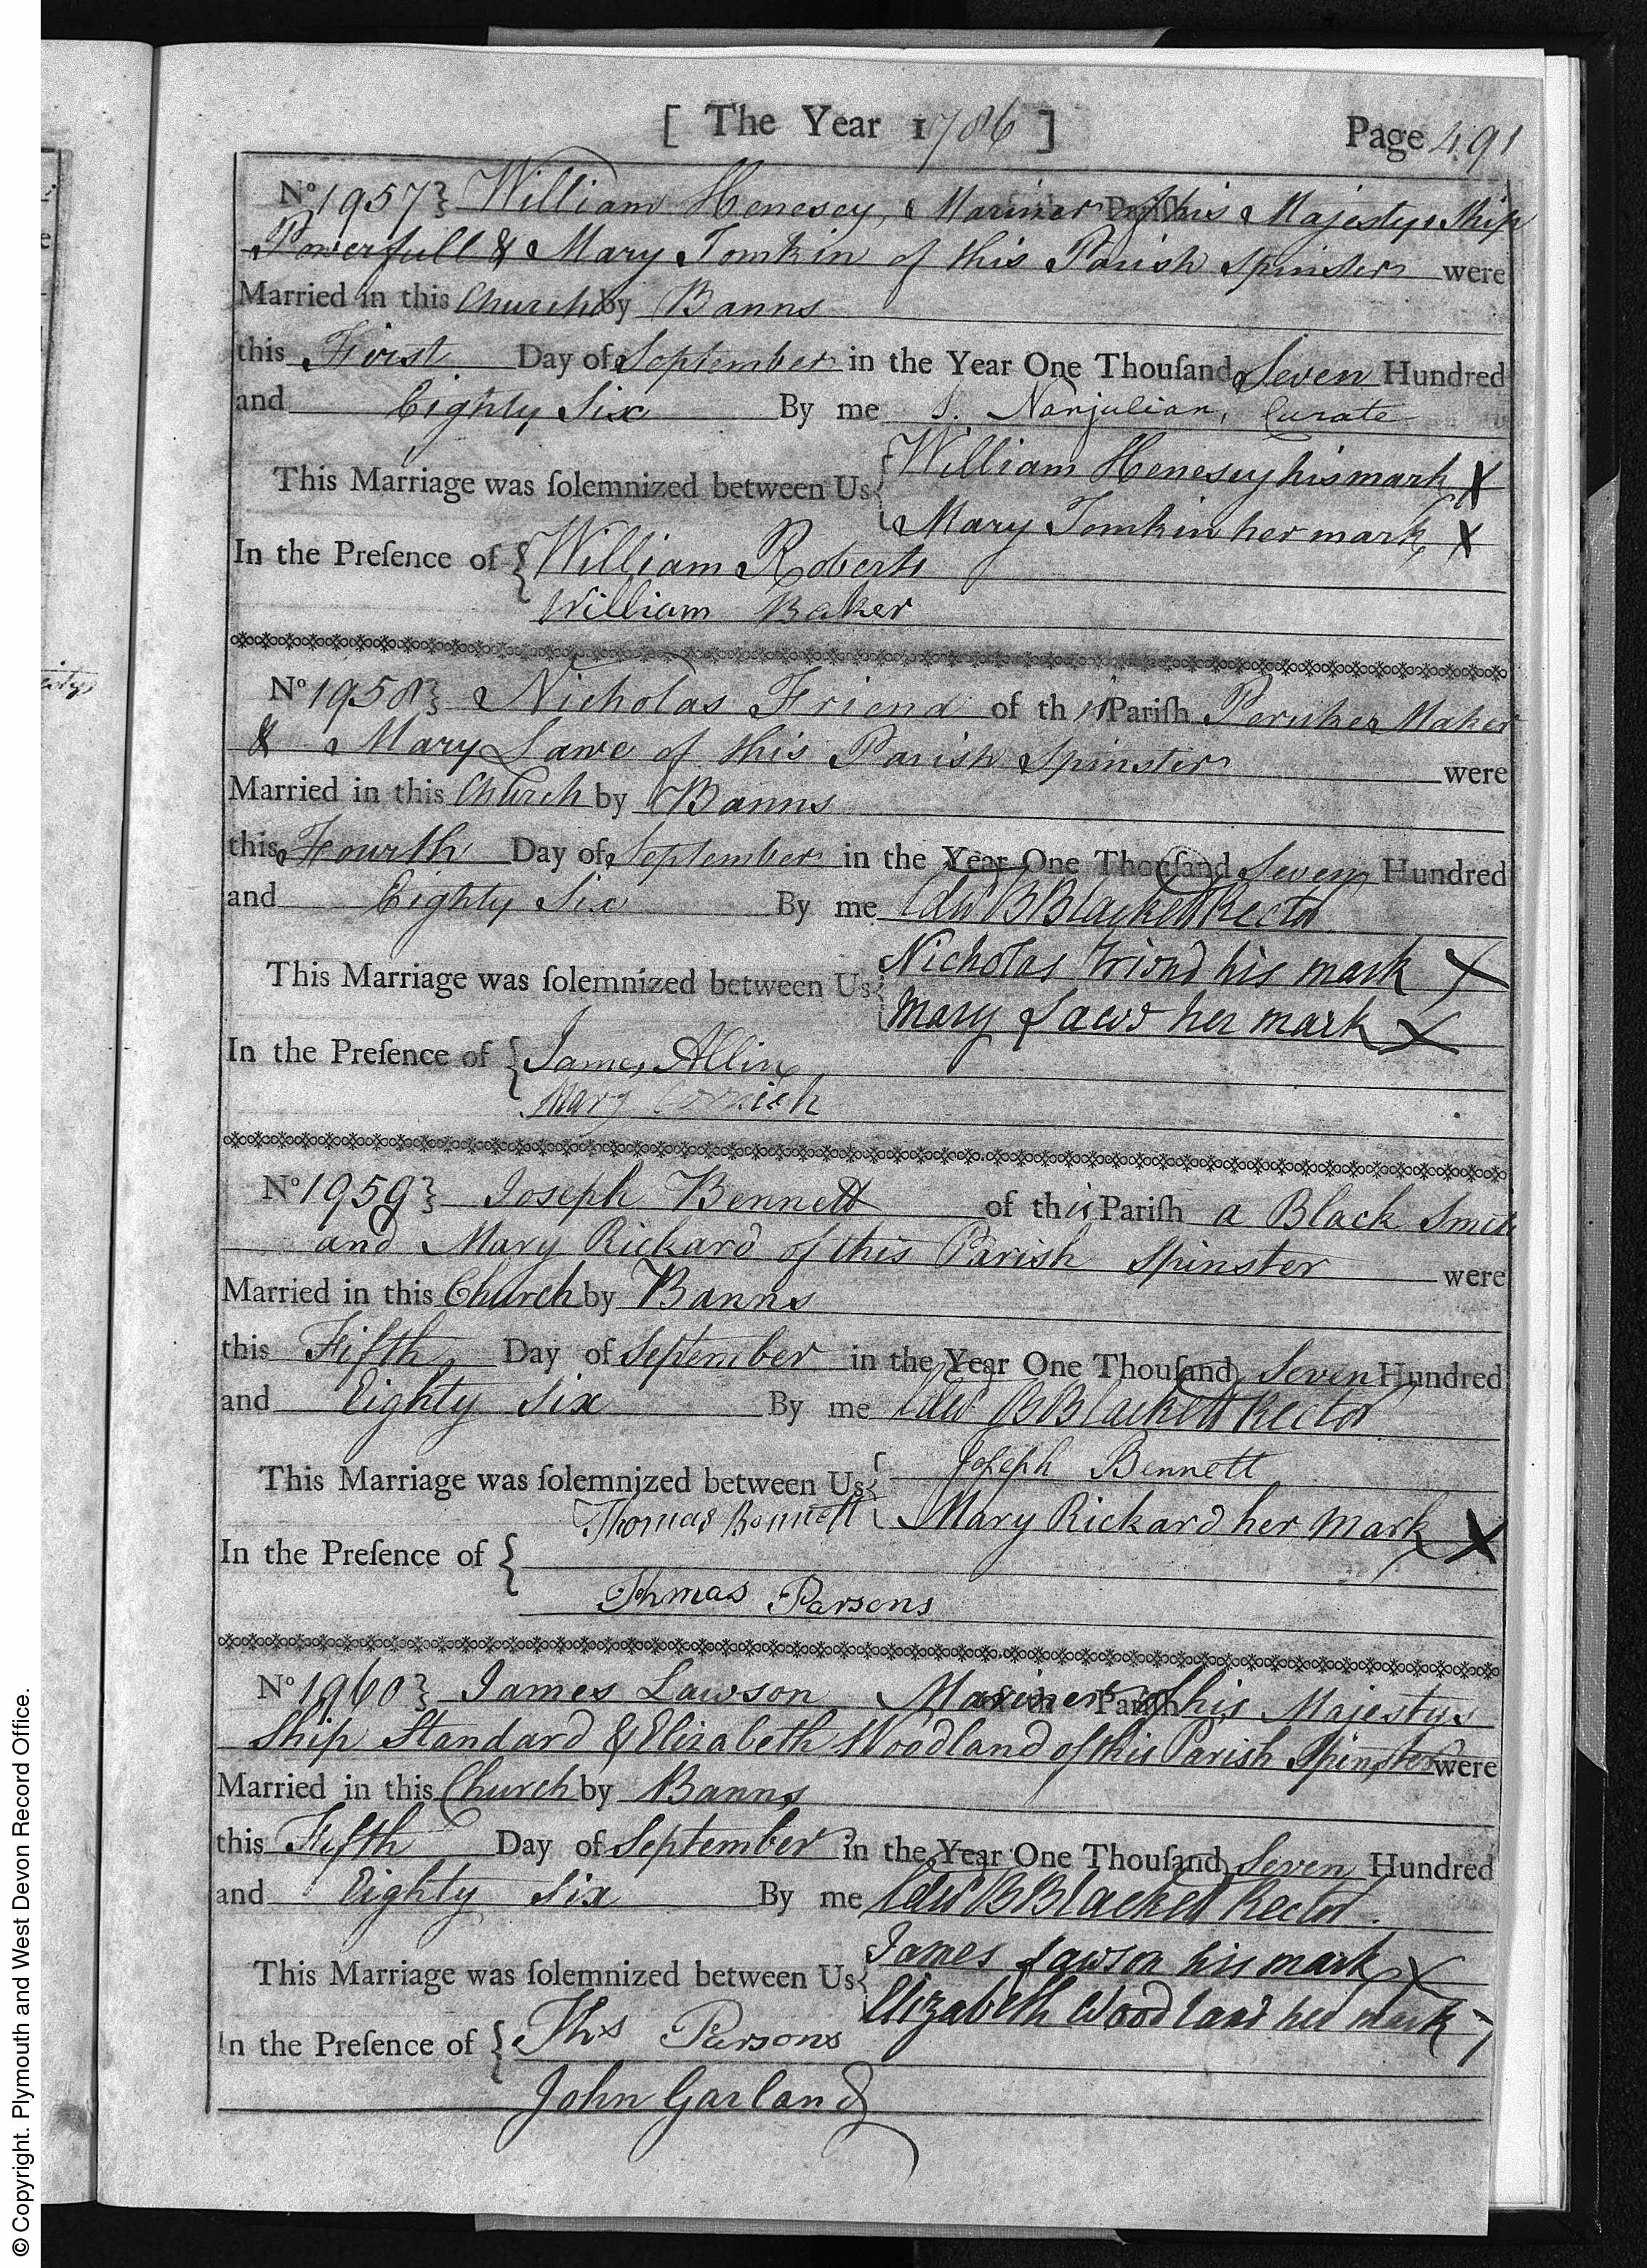 [ The Year 1786 ] Page 491
No 1957} William Henesey, Mariner of his Majestys Ship
Powerfull & Mary Tomkin of this Parish Spinster were
Married in this Church by Banns
this First Day of September in the Year One Thouſand Seven Hundred
and Eighty Six By me J. Nanjulian, Curate
This Marriage was ſolemnized between Us { William Henesey his mark X
Mary Tomkin her mark X
In the Preſence of { William Roberts
William Baker
No 1958} Nicholas Friend of this Pariſh Peruke Maker
& Mary Lawe of this Parish Spinster were
Married in this Church by Banns
this Fourth Day of September in the Year One Thouſand Seven Hundred
and Eighty Six By me Edwd B Blackett Rector
This Marriage was ſolemnized between Us { Nicholas Friend his mark X
Mary Lawe her mark X
In the Preſence of { James Allin
Mary Cornish
No 1959} Joseph Bennett of this Pariſh a Black Smith
and Mary Rickard of this Parish Spinster were
Married in this Church by Banns
this Fifth Day of September in the Year One Thouſand Seven Hundred
and Eighty Six By me Edwd B Blackett Rector
This Marriage was ſolemnized between Us { Joſeph Bennett
Thomas Bennett Mary Rickard her Mark X
In the Preſence of {
Thmas Parsons
No 1960} James Lawson Mariner of his Majestys
Ship Standard & Elizabeth Woodland of this Parish Spinster were
Married in this Church by Banns
this Fifth Day of September in the Year One Thouſand Seven Hundred
and Eighty Six By me Edwd B Blackett Rector.
This Marriage was ſolemnized between Us { James Lawson his mark X
Elizabeth Woodland her mark X
In the Preſence of { Thos Parsons
John Garland
© Copyright. Plymouth and West Devon Record Office.